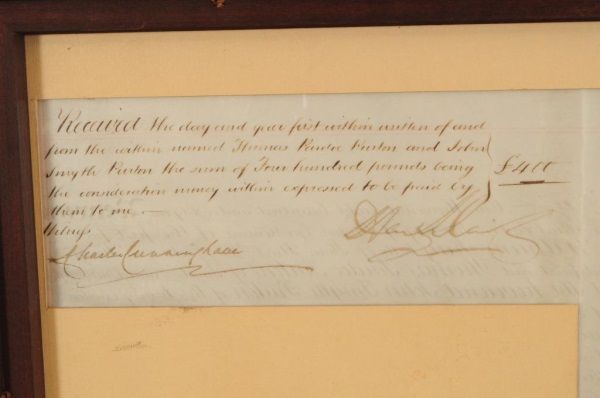 Received the day and year first within written of and
from the within named Thomas Purton and John
Smyth Purton the sum of Four hundred pounds being
the consideration money within expressed to be paid by
them to me.— £400
Witness
Charles Cunningham